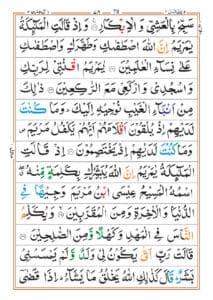 سَبِّحْ بِالْعَشِيِّ وَ الْاِبْكَارِ ۝ وَ اِذْ قَالَتِ الْمَلٰٓئِكَةُ
يٰمَرْيَمُ اِنَّ اللّٰهَ اصْطَفٰىكِ وَ طَهَّرَكِ وَ اصْطَفٰىكِ
عَلٰى نِسَآءِ الْعٰلَمِيْنَ ۝ يٰمَرْيَمُ اقْنُتِيْ لِرَبِّكِ
وَ اسْجُدِيْ وَ ارْكَعِيْ مَعَ الرّٰكِعِيْنَ ۝ ذٰلِكَ
مِنْ اَنْۢبَآءِ الْغَيْبِ نُوْحِيْهِ اِلَيْكَ ؕ وَ مَا كُنْتَ
لَدَيْهِمْ اِذْ يُلْقُوْنَ اَقْلَامَهُمْ اَيُّهُمْ يَكْفُلُ مَرْيَمَ
وَ مَا كُنْتَ لَدَيْهِمْ اِذْ يَخْتَصِمُوْنَ ۝ اِذْ قَالَتِ
الْمَلٰٓئِكَةُ يٰمَرْيَمُ اِنَّ اللّٰهَ يُبَشِّرُكِ بِكَلِمَةٍ مِّنْهُ
اسْمُهُ الْمَسِيْحُ عِيْسَى ابْنُ مَرْيَمَ وَجِيْهًا فِي
الدُّنْيَا وَ الْاٰخِرَةِ وَ مِنَ الْمُقَرَّبِيْنَ ۝ وَ يُكَلِّمُ
النَّاسَ فِي الْمَهْدِ وَ كَهْلًا وَّ مِنَ الصّٰلِحِيْنَ ۝
قَالَتْ رَبِّ اَنّٰى يَكُوْنُ لِيْ وَلَدٌ وَّ لَمْ يَمْسَسْنِيْ
بَشَرٌ ؕ قَالَ كَذٰلِكِ اللّٰهُ يَخْلُقُ مَا يَشَآءُ ؕ اِذَا قَضٰۤى